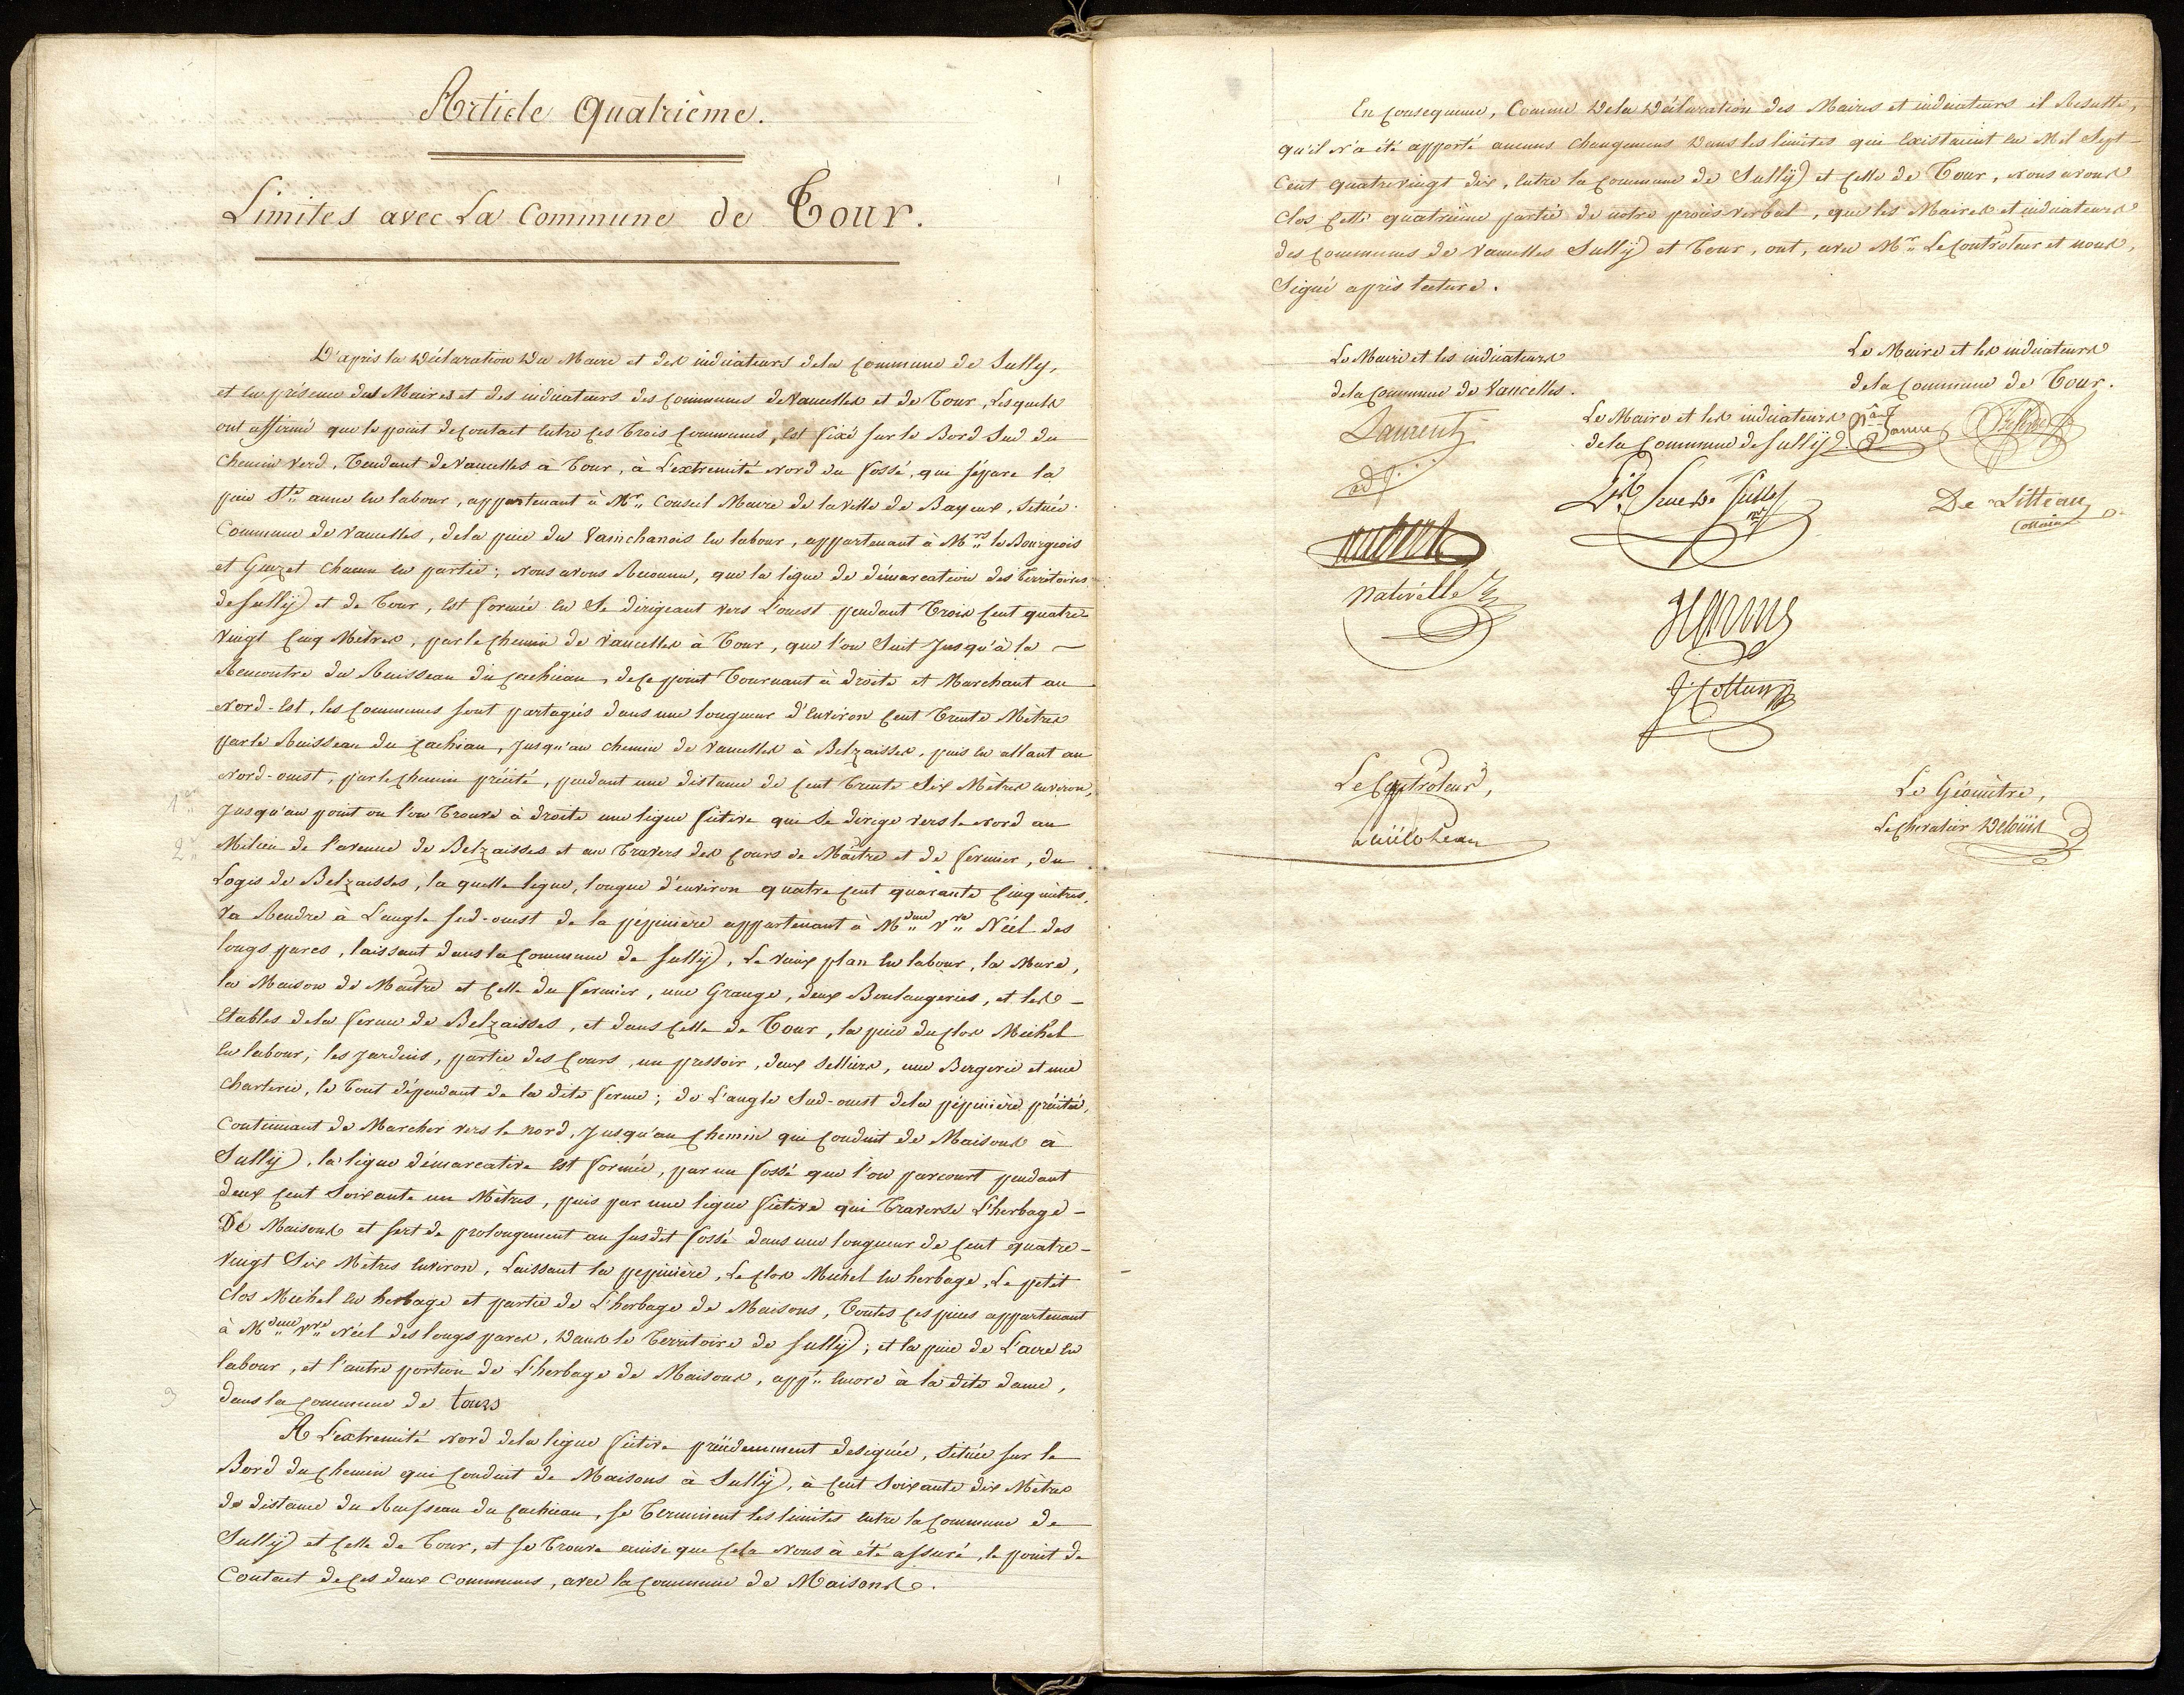 Article Quatrième.
Limites avec La Commune de Tour.
D'après la Déclaration Du Maire et des indicateurs de la Commune de Sully,
et en présence des Maires et des indicateurs des Communes de Vaucelles et de Tour, Lesquels
ont affirmé que le point de contact entre ces Trois Communes, est fixé sur le Bord Sud du
Chemin Verd, Tendant de Vaucelles à Tour, à L'extremité Nord du fossé, que sépare la
pièce Ste anne en labour, appartenant à Mr. Conseil Maire de la Ville de Bayeux, Située
Commune de Vaucelles, de la pièce du Vainchanois en labour, appartenant à Mrs. le Bourgeois
et Guezet Chacun en partie; nous avons Reconnu, que la ligne de démarcation des Territoires
de Sully et de Tour, est formée en Se dirigeant vers L'ouest pendant Trois Cent quatre-
Vingt Cinq Mètres, par le Chemin de Vaucelles à Tour, que l'on Suit Jusqu'à la
Rencontre du Ruisseau du Cachieau, de ce point Tournant à droite et Marchant au
Nord-Est, les Communes sont partagées dans une longueur d'environ Cent Trente Mètres
par le Ruisseau du Cachieau, Jusqu'au Chemin de Vaucelles à Belzaisses, puis en allant au
Nord-ouest, par le Chemin précité, pendant une distance de Cent Trente Six Mètres environ,
1er
Jusqu'au point ou l'on Trouve à droite une ligne fictive qui Se dirige vers le Nord au
2
Milieu de l'avenue de Belzaisses et au Travers des Cours de Maître et de fermier, du
Logis de Belzaisses, la quelle ligne, longue d'environ quatre Cent quarante Cinq mètres,
Va Rendre à L'angle sud-ouest de la pépinière appartenant à Mdme Vve Néel des
longs parcs, laissant dans la Commune de Sully, Le vieux plan en labour, la Mare,
la Maison de Maître et Celle du fermier, une Grange, deux Boulangeries, et les
Etables de la ferme de Belzaisses, et dans Celle de Tour, la pièce du Clos Michel
en labour; les Jardins, partie des Cours, un pressoir, deux Selliers, une Bergerie et une
Charterie, le Tout dépendant de la dite ferme; de L'angle Sud-ouest de la pépinière précitée,
Continuant de Marcher vers le nord, Jusqu'au Chemin qui Conduit de Maisons à
Sully, la ligne démarcative est formée, par un fossé que l'on parcourt pendant
deux Cent Soixante un Mètres, puis par une ligne fictive qui Traverse L'herbage
De Maisons et sert de prolongement au susdit fossé dans une longueur de Cent quatre-
Vingt Six Mètres environ, Laissant la pepinière, Le Clos Michel en herbage, Le petit
Clos Michel en herbage et partie de L'herbage de Maisons, Toutes ces pièces appartenant
à Mdme Vve Néel des longs parcs, Dans le Territoire de Sully; et la pièce de L'acre en
labour, et l'autre portion de L'herbage de Maisons, appt. encore à la dite dame,
3
dans la Commune de tours
A L'extremité Nord de la ligne fictive précédemment designée, Située sur le
Bord du Chemin qui Conduit de Maisons à Sully, à Cent Soixante dix Mètres
de distance du Ruisseau du Cachieau, se Terminent les limites entre la Commune de
Sully et Celle de Tour, et se Trouve ainsi que Cela Nous à été assuré, le point de
Contact de ces deux Communes, avec la Commune de Maisons.
En Consequence, Comme De la Déclaration des Maires et indicateurs il Resulte,
qu'il n'a été apporté aucuns Changemens Dans les limites qui Existaient en Mil Sept
Cent quatrevingt dix, entre la Commune de Sully et Celle de Tour, nous avons
Clos Cette quatrième partie de notre procès-verbal, que les Maires et indicateurs
des Communes de Vaucelles Sully et Tour, ont, avec Mr. Le Contrôleur et nous,
Signé après lecture.
Le Maire et les indicateurs
de la Commune de Vaucelles.
Laurent
adj.
aubert
Nativelle
Le Maire et les indicateurs
de la Commune de Sully.
J. Cottun
Le Maire et les indicateurs
de la Commune de Tour.
De Litteau
Le Contrôleur,
Le Géomètre,
Le Chevalier Deloüis